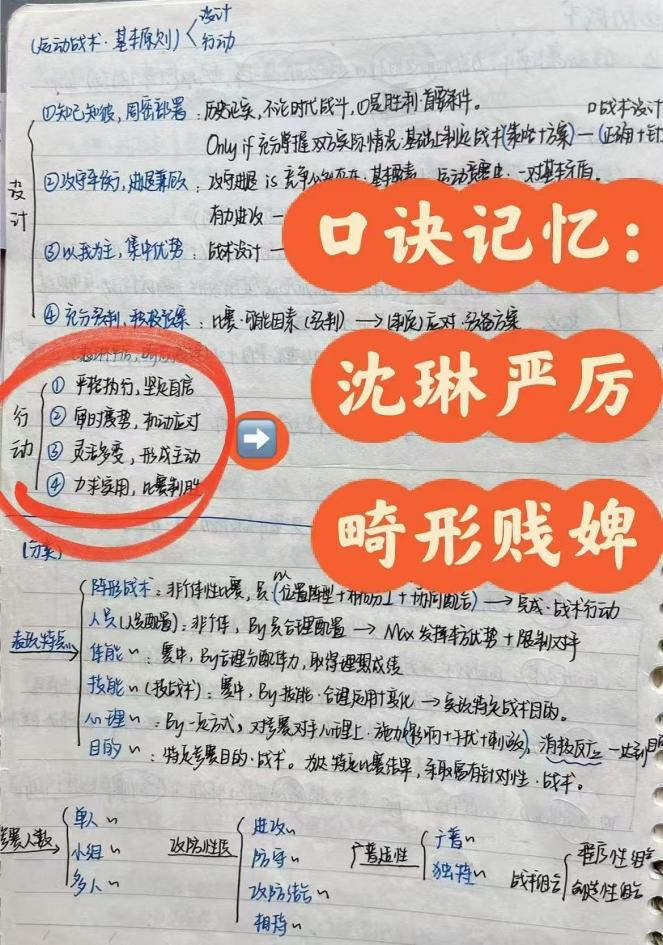 (运动战术·基本原则) < 设计
行动
设计
①知己知彼，周密部署：历史证实，不论时代战斗，①是胜利·首要条件。
Only if 充分掌握双方实际情况·基础上制定战术(策略+方案)—(正确+针
口战术设计
②攻守平衡，进退兼顾：攻守进退 is 竞争 基本要素，运动竞赛中·一对基本矛盾。
有力进攻 —
③以我为主，集中优势：战术设计 —
④充分预判，积极预案：比赛·可能因素(预判)→(制定)应对·预备方案
行动
①严格执行，坚定自信
②审时度势，机动应对
③灵活多变，形成主动
④力求实用，比赛制胜
口诀记忆：
沈琳严厉
畸形贱婢
(分类)
表现特点
阵形战术：非个体性比赛，员(位置阵型+ +协同配合)→完成·战术行动
人员(人员配置)：非个体，By员合理配置→Max发挥本方优势+限制对手
体能〃：赛中，By合理分配体力，取得理想成绩
技能〃(技战术)：赛中，By技能·合理运用+变化→实现特定战术目的。
心理〃：By一定方式，对参赛对手心理上·施加(影响+干扰+刺激)，消极反应—达到目的
目的〃：特定参赛目的·战术。为达特定比赛结果，采取富有针对性·战术。
参赛人数
单人〃
小组〃
多人〃
攻防性质
进攻〃
防守〃
攻防结合〃
相持〃
广普适性
广普〃
独特〃
战术组合
程序性组合
创造性组合